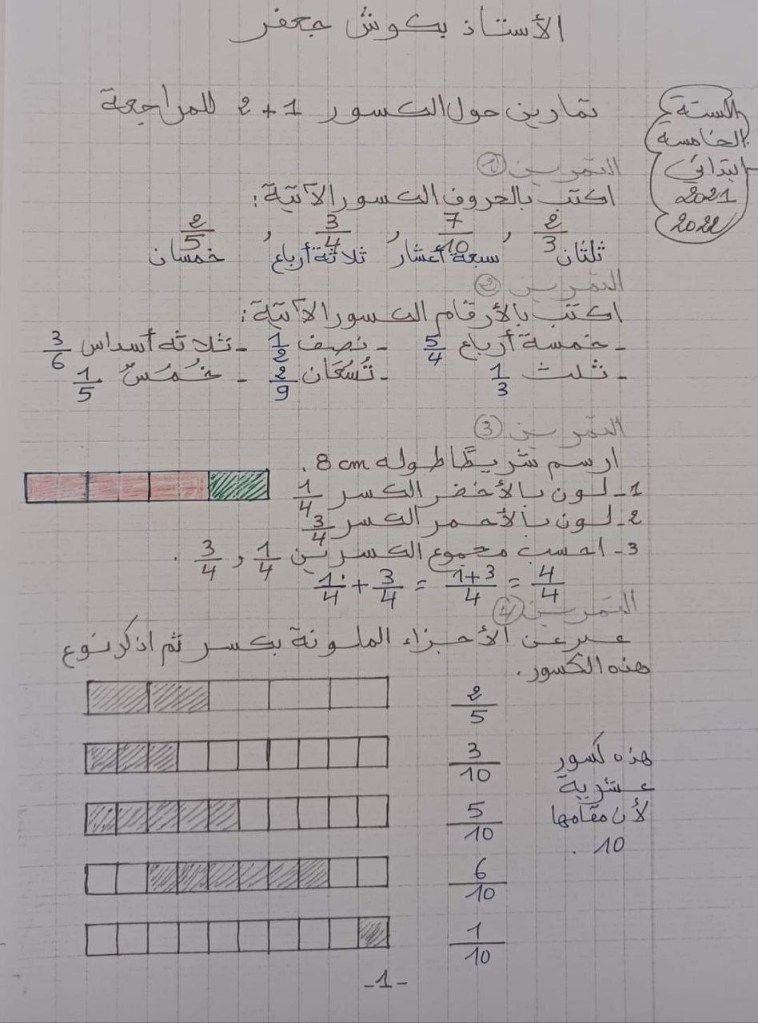 الأستاذ بكوش جعفر
تمارين حول الكسور 1 + 2 للمراجعة
السنة
الخامسة
ابتدائي
2021
2022
التمرين 1
اكتب بالحروف الكسور الآتية:
2/3 , 7/10 , 3/4 , 2/5
ثلثان سبعة أعشار ثلاثة أرباع خمسان
التمرين 2
اكتب بالأرقام الكسور الآتية:
- خمسة أرباع 5/4 - نصف 1/2 - ثلاثة أسداس 3/6
- ثلث 1/3 - تُسُعَان 2/9 - خُمُسٌ 1/5
التمرين 3
ارسم شريطًا طوله 8 cm .
1 - لون بالأخضر الكسر 1/4
2 - لون بالأحمر الكسر 3/4
3 - احسب مجموع الكسرين 1/4 و 3/4 .
1/4 + 3/4 = 1+3/4 = 4/4
التمرين 4
عبر عن الأجزاء الملونة بكسر ثم اذكر نوع
هذه الكسور.
2/5
3/10
5/10
6/10
1/10
هذه كسور
عشرية
لأن مقامها
10 .
-1-